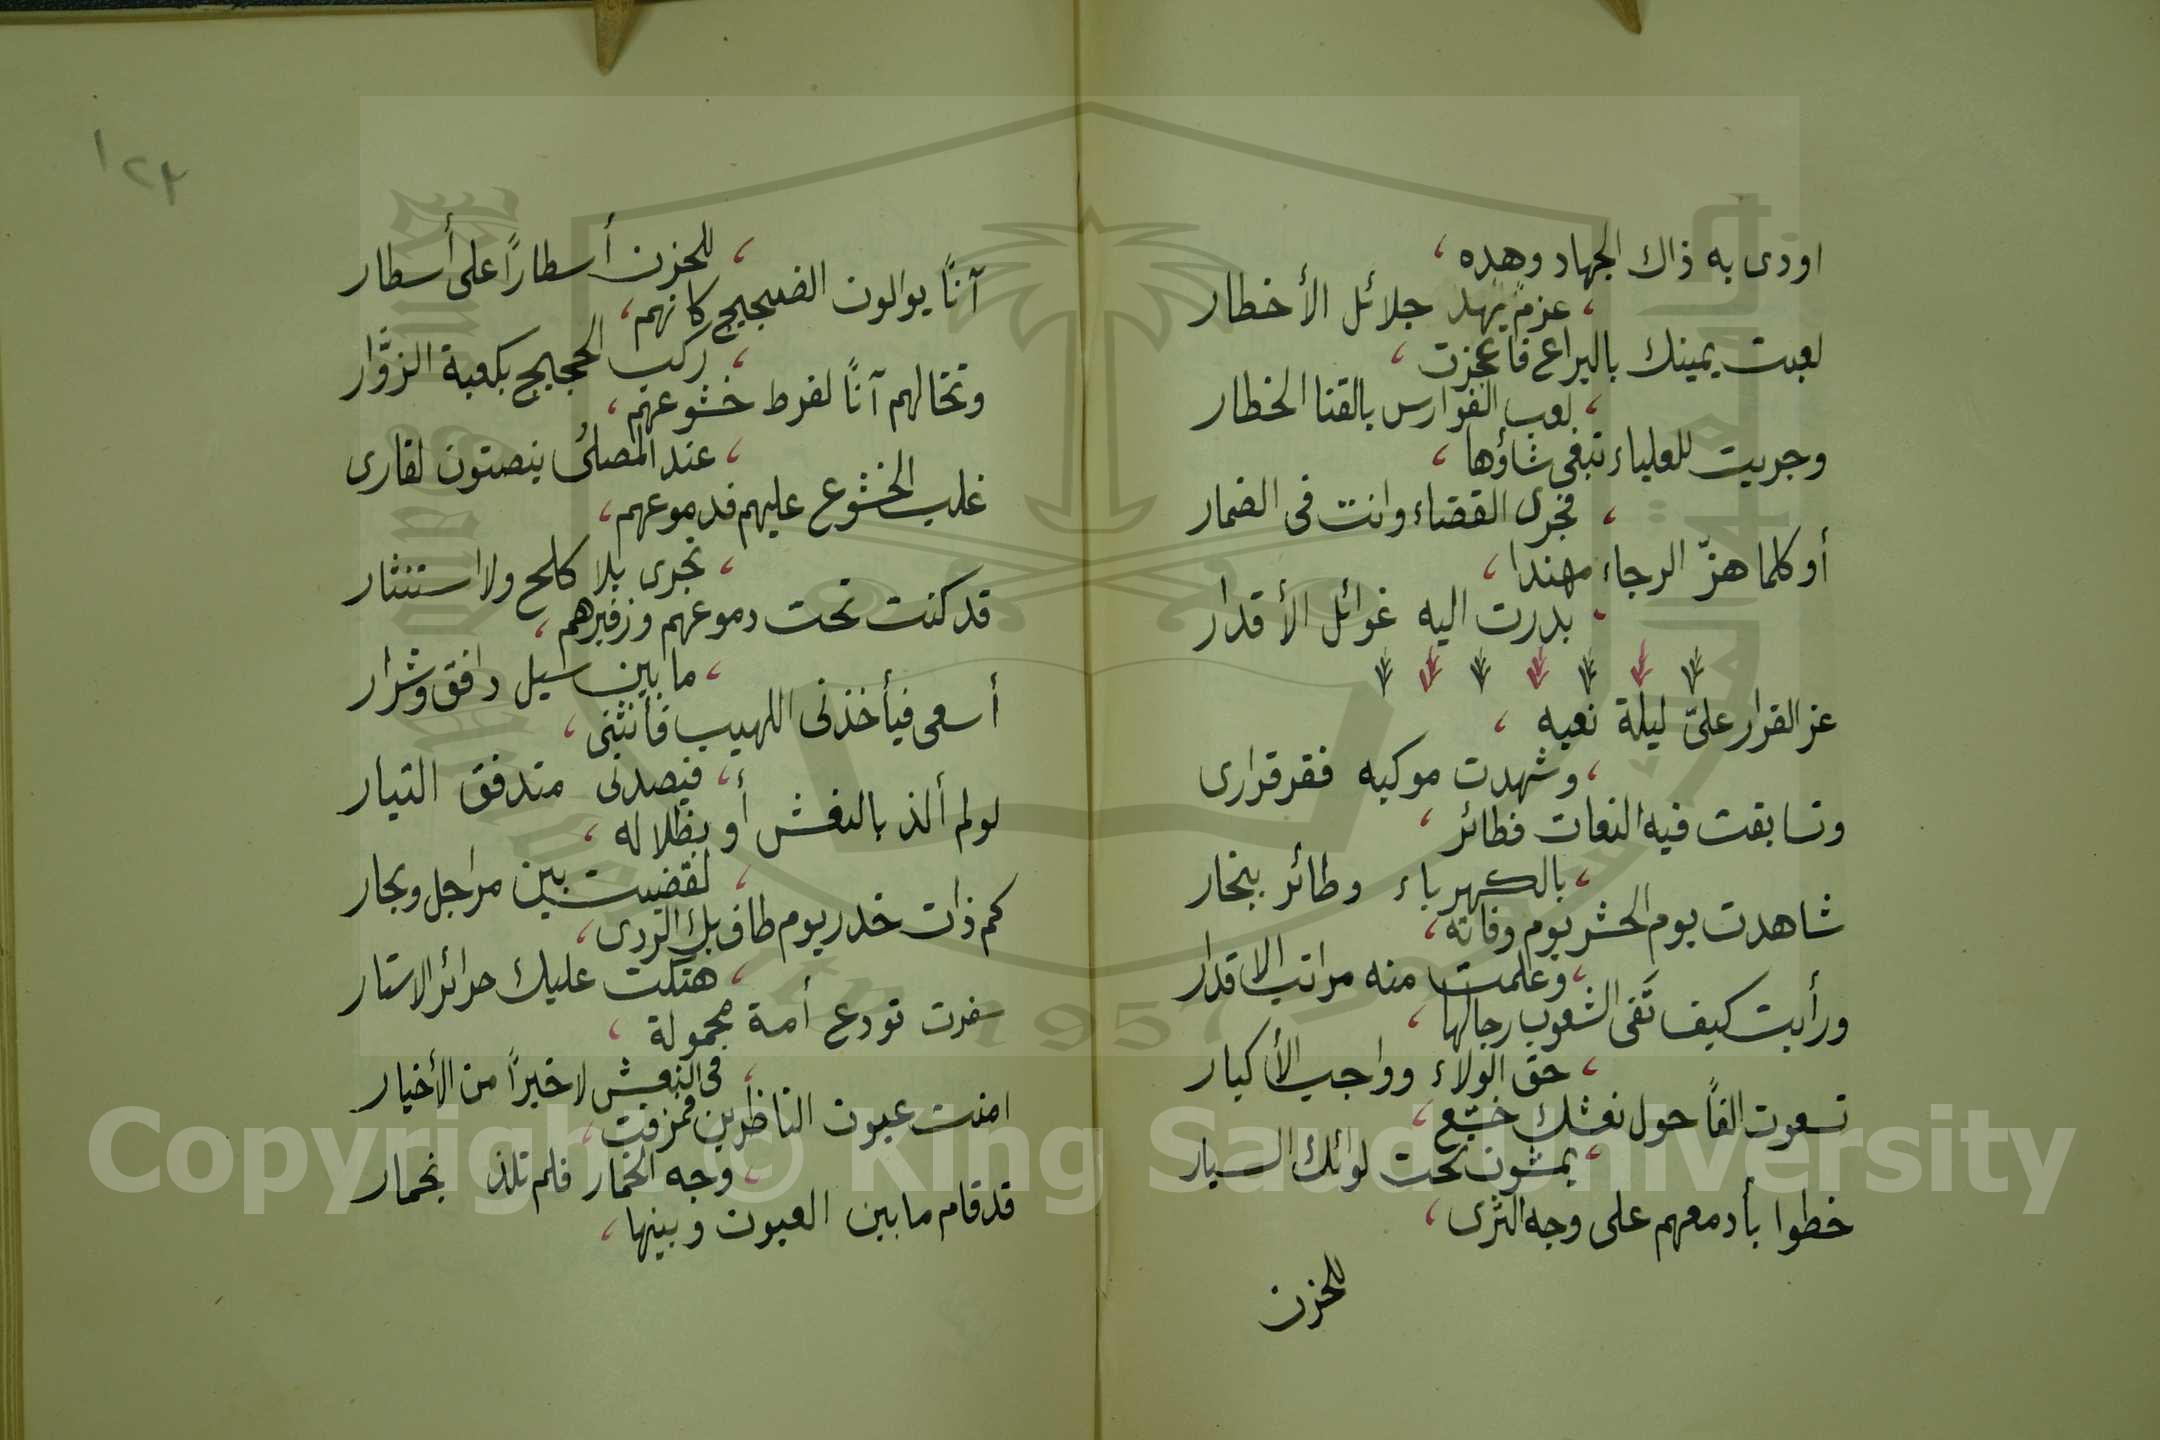 اودى به ذاك الجهاد وهده،
،عزم يهد جلائل الأخطار
لعبت يمينك باليراع فأعجزت،
،لعب الفوارس بالقنا الخطار
وجريت للعلياء تبغى شاؤها،
،فجرى القضاء وانت فى الضمار
أو كلما هزّ الرجاء مهندا،
،بدرت اليه غوائل الأقدار
عز القرار علىّ ليلة نعيه،
،وشهدت موكبه فقر قرارى
وتسابقت فيه النعات فطائر،
،بالكهرباء وطائر ببخار
شاهدت يوم الحشر يوم وفاته،
،وعلمت منه مراتب الاقدار
ورأيت كيف تفى الشعوب رجالها،
،حق الولاء وواجب الأكيار
تسعون الفاً حول نعشك خشع،
،يمشون تحت لوائك السيار
خطوا بأدمعهم على وجه الثرى،
للحزن
١٢٣
،للحزن أسطاراً على أسطار
آناً يوالون الضجيج كانهم،
،ركب الحجيج بكعبة الزوَّار
وتخالهم آناً لفرط خشوعهم،
،عند المصلى ينصتون لقارى
غلب الخشوع عليهم فدموعهم،
،تجرى بلا كلح ولا استنثار
قد كنت تحت دموعهم وزفيرهم،
،ما بين سيل دافق وشرار
أسعى فيأخذنى اللهيب فأنثنى،
،فيصدنى متدفق التيار
لو لم ألذ بالنعش أو بظلاله،
،لقضيت بين مراجل وبحار
كم ذات خدر يوم طاف بك الردى،
،هتكت عليك حرائر الاستار
سفرت تودع أمة محمولة،
،فى النعش لا خيراً من الأخيار
امنت عيون الناظرين فمزقت،
،وجه الخمار فلم تلذ بخمار
قد قام ما بين العيون وبينها،
Copyright © King Saud University
1957